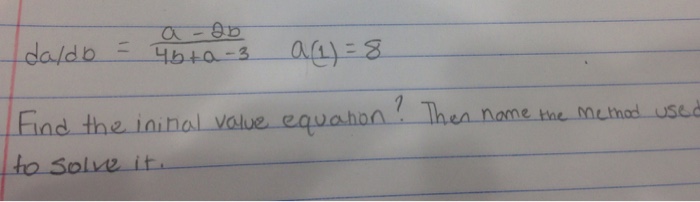 da/db = a - 2b / 4b + a - 3   a(1) = 8
Find the initial value equation? Then name the method used
to solve it.